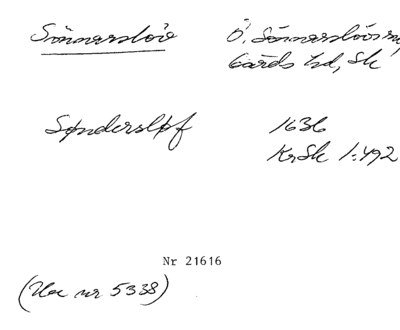 Sönnerslöv Ö. Sönnerslövs
Gärds hd, Sk
Søndersløf 1636
KrSk 1:492
Nr 21616
(Ua nr 5338)